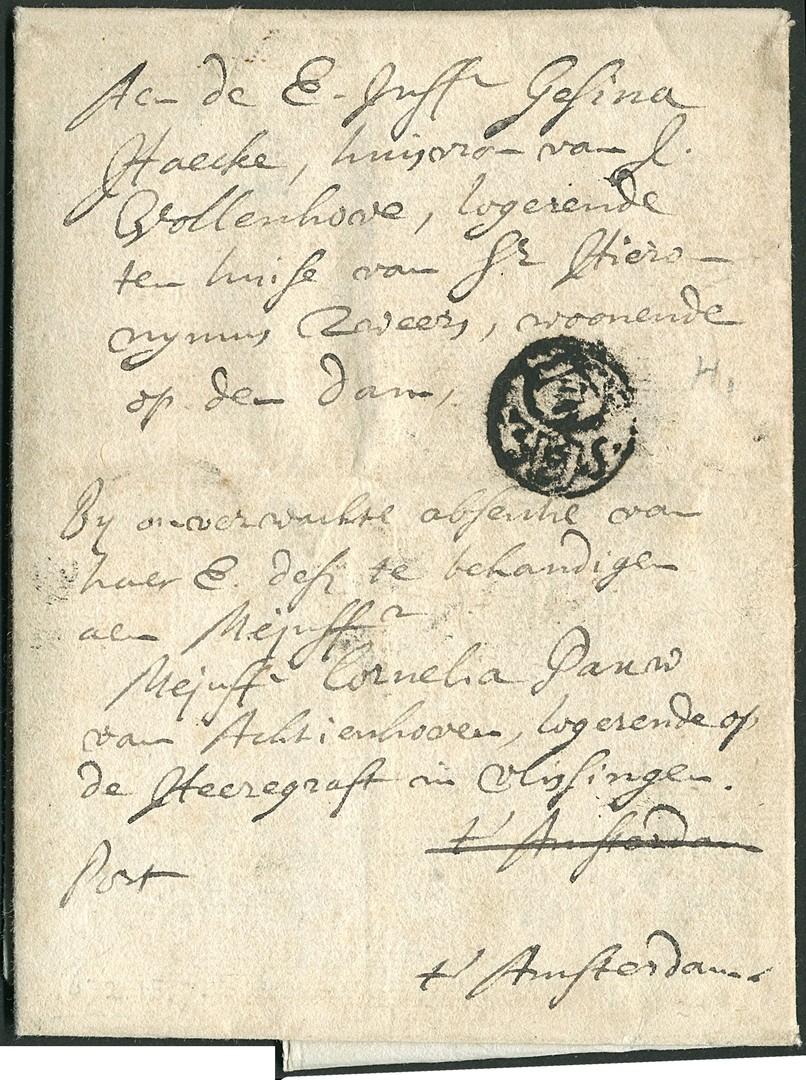 Aen de E. Juffr Gesina
Haecke, huisvrou van J.
Vollenhove, logerende
ten huise van Sr Hiero-
nymus Zweers, woonende
op den Dam,
H,
By onverwachte absentie van
haer E. dese te behandigen
aen Mejuffr
Mejuffr Cornelia Pauw
van Achtienhoven, logerende op
de Heeregraft in Vlissingen.
t' Amsterdam
Port
t' Amsterdam.